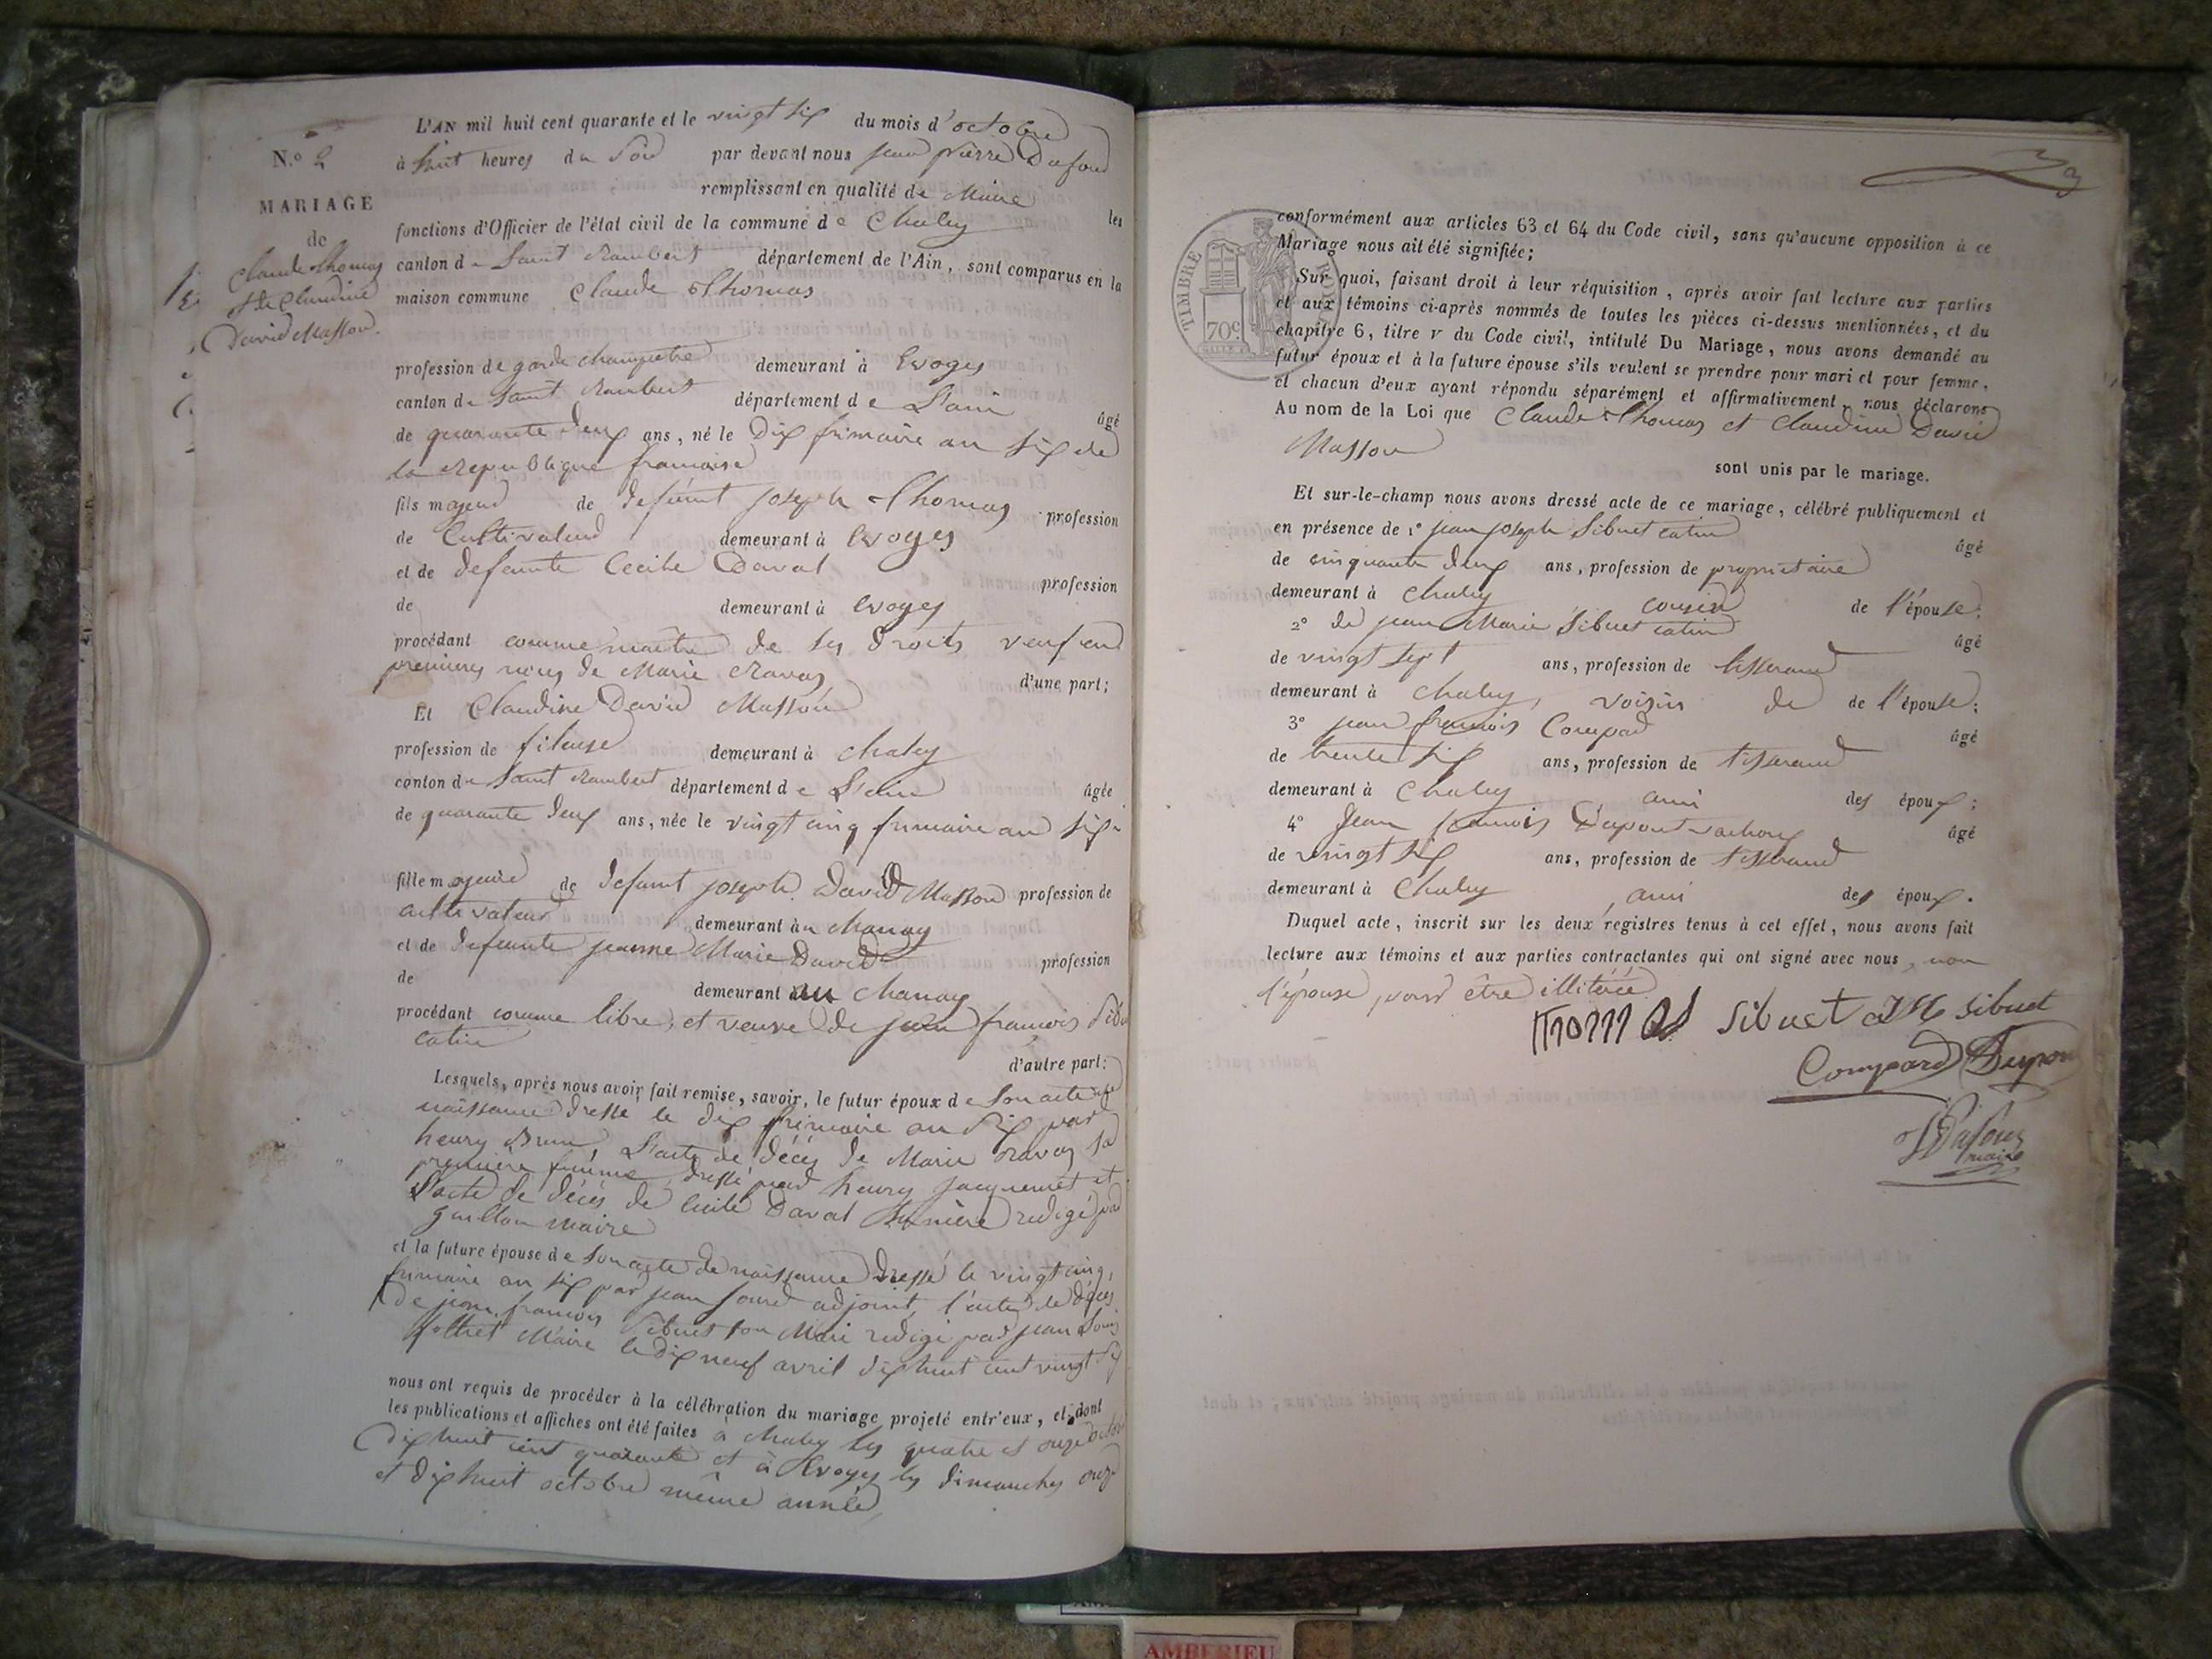 L'AN mil huit cent quarante et le vingt six du mois d'octobre
N.º 2
à huit heures du soir par devant nous jean pierre Dufour
remplissant en qualité de Maire les
MARIAGE
fonctions d'Officier de l'état civil de la commune de Chaley
de
Claude Thomas
et de Claudine
David Masson.
canton de Saint Rambert département de l'Ain, sont comparus en la
maison commune Claude Thomas
profession de garde champetre demeurant à Evoges
canton de Saint Rambert département de L'ain âgé
de quarante deux ans, né le Dix frimaire an six de
la republique francaise
fils majeur de defunt joseph Thomas profession
de Cultivateur demeurant à Evoges
et de defunte Cecile Daval profession
de demeurant à Evoges
procédant comme maitre de ses droits veuf en
premieres noces de Marie Ravas d'une part;
Et Claudine David Masson
profession de fileuse demeurant à Chaley
canton de Saint Rambert département de L'ain âgée
de quarante deux ans, née le vingt cinq frimaire an six
fille majeure de defunt joseph David Masson profession de
cultivateur demeurant à
et de defunte jeanne Marie David profession
de demeurant au
procédant comme libre, et veuve de jean françois Sibuet
catin
d'autre part:
Lesquels, après nous avoir fait remise, savoir, le futur époux de son acte de
naissance dressé le dix frimaire an six par
henry Brun, L'acte de décés de Marie Ravas sa
première femme, dressé par henry jacquemet et
L'acte de décés de Cecile Daval sa mère redigé par
maire
et la future épouse de son acte de naissance dressé le vingt cinq,
frimaire an six par jean adjoint, l'acte de décés
de jean françois Sibuet son Mari redigé par jean Louis
Maire le dix neuf avril dix huit cent vingt six
nous ont requis de procéder à la célébration du mariage projeté entr'eux, et dont
les publications et affiches ont été faites à chaley les quatre et onze octobre
dix huit cent quarante et à Evoges les dimanches onze
et dix huit octobre même année
conformément aux articles 63 et 64 du Code civil, sans qu'aucune opposition à ce
Mariage nous ait été signifiée;
TIMBRE ROYAL
70c.
Sur quoi, faisant droit à leur réquisition, après avoir fait lecture aux parties
et aux témoins ci-après nommés de toutes les pièces ci-dessus mentionnées, et du
chapitre 6, titre v du Code civil, intitulé Du Mariage, nous avons demandé au
futur époux et à la future épouse s'ils veulent se prendre pour mari et pour femme,
et chacun d'eux ayant répondu séparément et affirmativement, nous déclarons
Au nom de la Loi que Claude Thomas et Claudine David
Masson
sont unis par le mariage.
Et sur-le-champ nous avons dressé acte de ce mariage, célébré publiquement et
en présence de 1º jean joseph Sibuet catin âgé
de cinquante deux ans, profession de proprietaire
demeurant à Chaley cousin de l'épouse;
2º de jean Marie Sibuet catin âgé
de vingt sept ans, profession de tisserand
demeurant à Chaley, voisin de de l'épouse;
3º jean françois Compard âgé
de trente six ans, profession de tisserand
demeurant à Chaley ami des époux;
4º Jean françois Dupont âgé
de vingt six ans, profession de tisserand
demeurant à Chaley, ami des époux.
Duquel acte, inscrit sur les deux registres tenus à cet effet, nous avons fait
lecture aux témoins et aux parties contractantes qui ont signé avec nous, non
l'épouse, pour être illiterée
Sibuet J M Sibuet
Compard Dupon
Dufour
maire
AMBERIEU